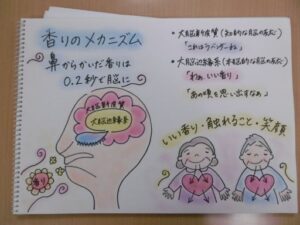 香りのメカニズム
鼻からかいだ香りは
0.2秒で脳に
大脳新皮質
大脳辺縁系
香り
・大脳新皮質(知的な脳の反応)
「これはラベンダーね」
・大脳辺縁系(本能的な脳の反応)
「わぁ、いい香り」
「あの頃を思い出すなぁ」
いい香り・触れること・笑顔